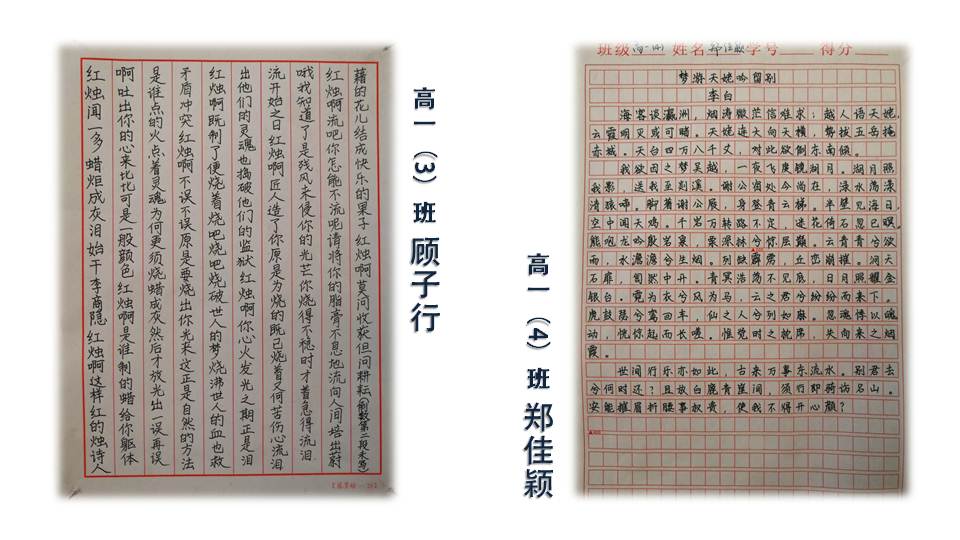 红烛闻一多 蜡炬成灰泪始干 李商隐 红烛啊这样红的烛诗人
啊吐出你的心来比比可是一般颜色红烛啊是谁制的蜡给你躯体
是谁点的火点着灵魂为何更须烧蜡成灰然后才放光出一误再误
矛盾冲突红烛啊不误不误原是要烧出你光来这正是自然的方法
红烛啊既制了便烧着烧吧烧吧烧破世人的梦烧沸世人的血也救
出他们的灵魂也捣破他们的监狱红烛啊你心火发光之期正是泪
流开始之日红烛啊匠人造了你原是为烧的既已烧着又何苦伤心流泪
哦我知道了是残风来侵你的光芒你烧得不稳时才着急得流泪
红烛啊流吧你怎能不流呢请将你的脂膏不息地流向人间培出慰
藉的花儿结成快乐的果子红烛啊莫问收获但问耕耘(倒数第二段未写)
高一（3）班 顾子行
班级高一(4) 姓名郑佳颖学号 得分
梦游天姥吟留别
李白
海客谈瀛洲，烟涛微茫信难求；越人语天姥，
云霞明灭或可睹。天姥连天向天横，势拔五岳掩
赤城。天台四万八千丈，对此欲倒东南倾。
我欲因之梦吴越，一夜飞度镜湖月。湖月照
我影，送我至剡溪。谢公宿处今尚在，渌水荡漾
清猿啼。脚著谢公屐，身登青云梯。半壁见海日，
空中闻天鸡。千岩万转路不定，迷花倚石忽已暝。
熊咆龙吟殷岩泉，栗深林兮惊层巅。云青青兮欲
雨，水澹澹兮生烟。列缺霹雳，丘峦崩摧。洞天
石扉，訇然中开。青冥浩荡不见底，日月照耀金
银台。霓为衣兮风为马，云之君兮纷纷而来下。
虎鼓瑟兮鸾回车，仙之人兮列如麻。忽魂悸以魄
动，恍惊起而长嗟。惟觉时之枕席，失向来之烟
霞。
世间行乐亦如此，古来万事东流水。别君去
兮何时还？且放白鹿青崖间，须行即骑访名山。
安能摧眉折腰事权贵，使我不得开心颜？
高一（4）班 郑佳颖